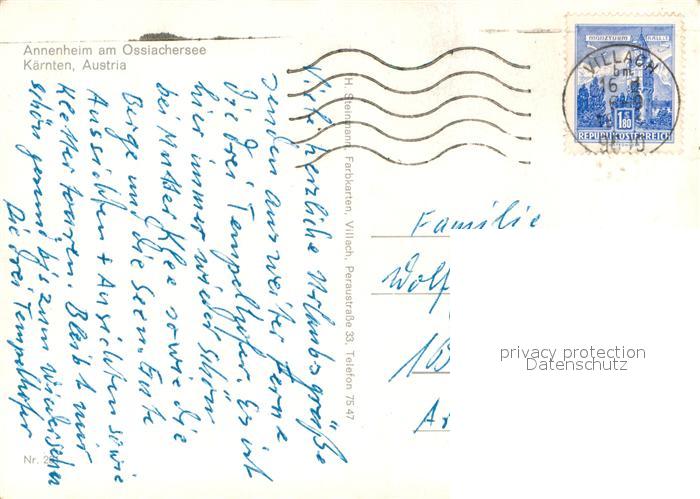 Annenheim am Ossiachersee
Kärnten, Austria
Viele herzliche Urlaubsgrüße
senden aus weiter Ferne
Die drei Tempelhofer. Es ist
hier immer wieder schön
bei Mutter Klee sowie die
Berge und die Seen. Gute
Aussichten + Ansichten sowie
Klettertouren. Bleibt mir
schön gesund bis zum Wiedersehn
Die drei Tempelhofer
Nr. 2
H. Steinmann, Farbkarten, Villach, Peraustraße 33, Telefon 75 47
MÜNZTURM HALL
1.80
REPUBLIK ÖSTERREICH
VILLACH
Familie
Wolf
16
privacy protection
Datenschutz